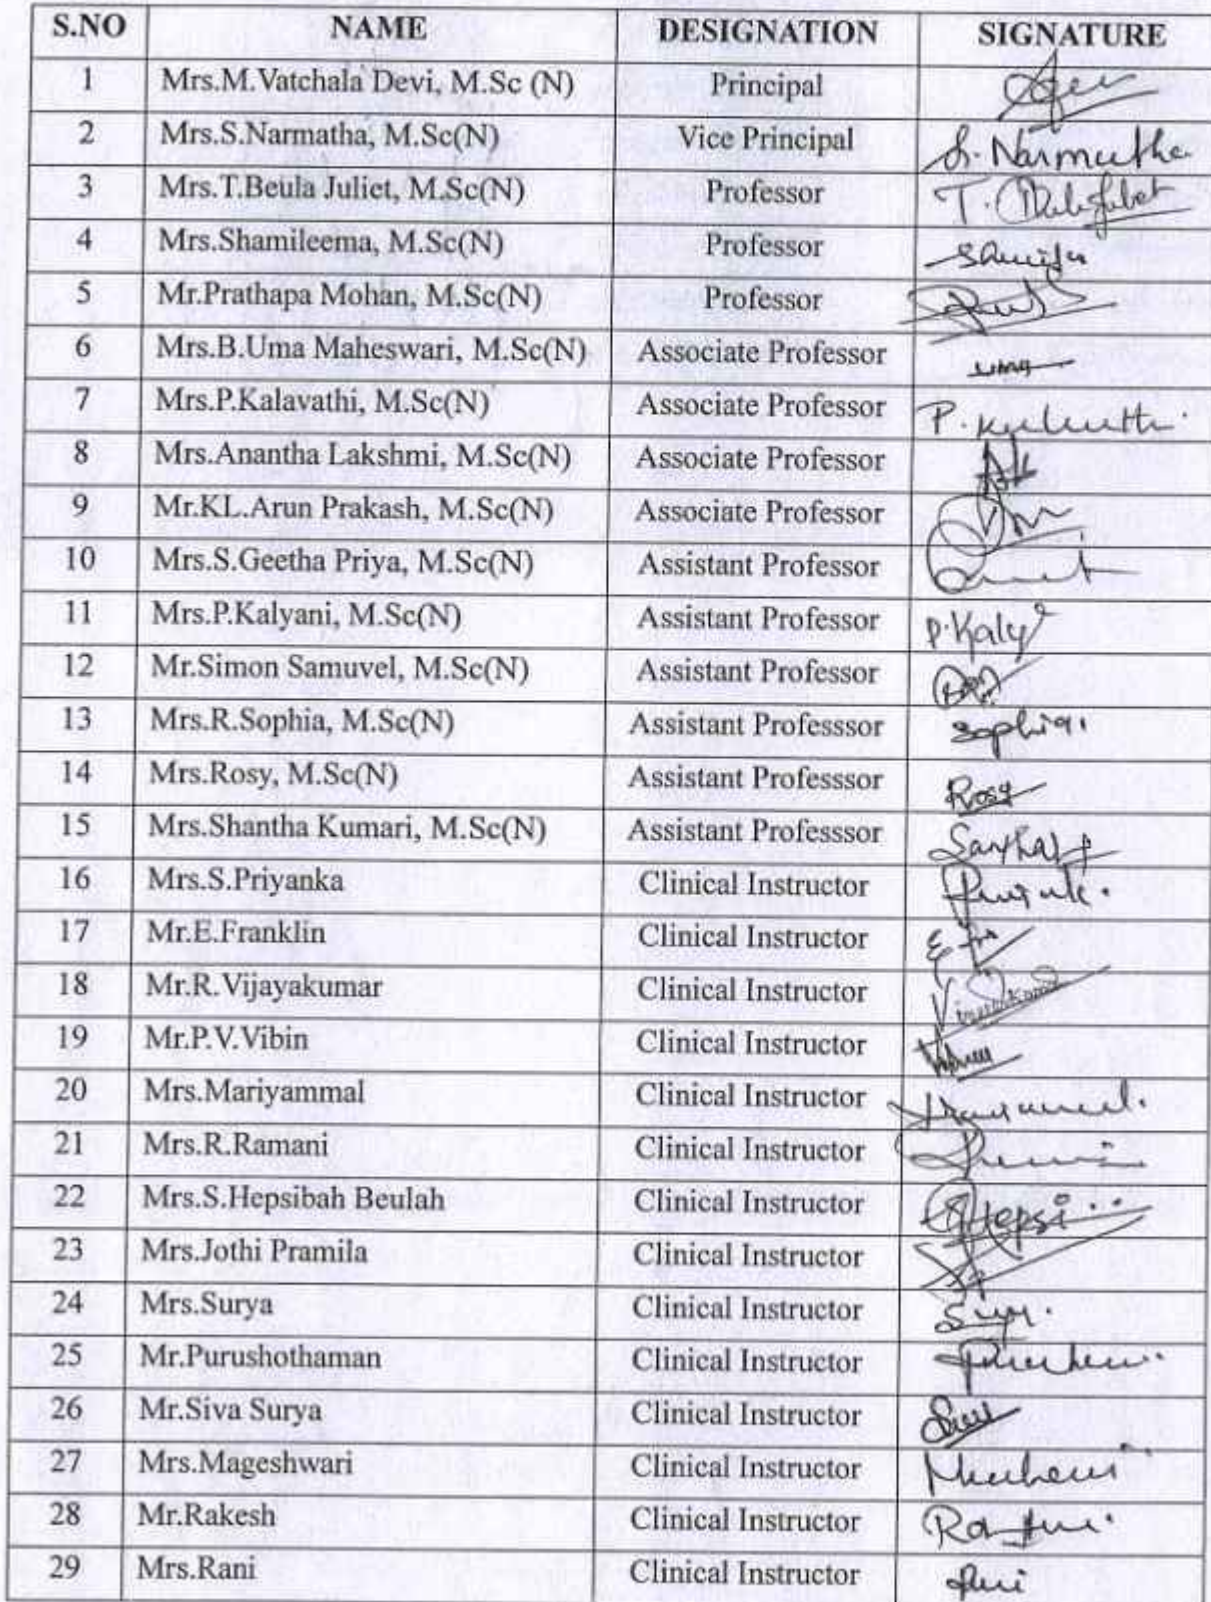 S.NO NAME DESIGNATION SIGNATURE
1 Mrs.M.Vatchala Devi, M.Sc (N) Principal
2 Mrs.S.Narmatha, M.Sc(N) Vice Principal S. Narmatha
3 Mrs.T.Beula Juliet, M.Sc(N) Professor T.
4 Mrs.Shamileema, M.Sc(N) Professor
5 Mr.Prathapa Mohan, M.Sc(N) Professor
6 Mrs.B.Uma Maheswari, M.Sc(N) Associate Professor uma
7 Mrs.P.Kalavathi, M.Sc(N) Associate Professor P.
8 Mrs.Anantha Lakshmi, M.Sc(N) Associate Professor
9 Mr.KL.Arun Prakash, M.Sc(N) Associate Professor
10 Mrs.S.Geetha Priya, M.Sc(N) Assistant Professor
11 Mrs.P.Kalyani, M.Sc(N) Assistant Professor P.Kaly
12 Mr.Simon Samuvel, M.Sc(N) Assistant Professor
13 Mrs.R.Sophia, M.Sc(N) Assistant Professsor Sophia.
14 Mrs.Rosy, M.Sc(N) Assistant Professsor Rosy
15 Mrs.Shantha Kumari, M.Sc(N) Assistant Professsor
16 Mrs.S.Priyanka Clinical Instructor
17 Mr.E.Franklin Clinical Instructor
18 Mr.R.Vijayakumar Clinical Instructor
19 Mr.P.V.Vibin Clinical Instructor
20 Mrs.Mariyammal Clinical Instructor
21 Mrs.R.Ramani Clinical Instructor
22 Mrs.S.Hepsibah Beulah Clinical Instructor Hepsi
23 Mrs.Jothi Pramila Clinical Instructor
24 Mrs.Surya Clinical Instructor
25 Mr.Purushothaman Clinical Instructor
26 Mr.Siva Surya Clinical Instructor
27 Mrs.Mageshwari Clinical Instructor
28 Mr.Rakesh Clinical Instructor
29 Mrs.Rani Clinical Instructor